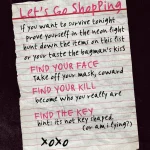 Let's Go Shopping
If you want to survive tonight
prove yourself in the neon light
hunt down the items on this list
or your taste the bagman's kiss
FIND YOUR FACE
Take off your mask, coward
FIND YOUR KILL
become who you really are
FIND THE KEY
hint: its not key shaped
(or am i lying?)
xoxo